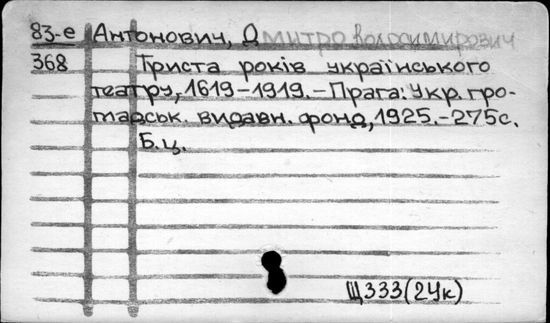 83-е Антонович, Дмитро Володимирович
368 Триста років українського
театру, 1619-1919.-Прага: Укр. гро-
мадськ. видавн. фонд, 1925.-275с.
Б.ц.
Щ333(2Ук)